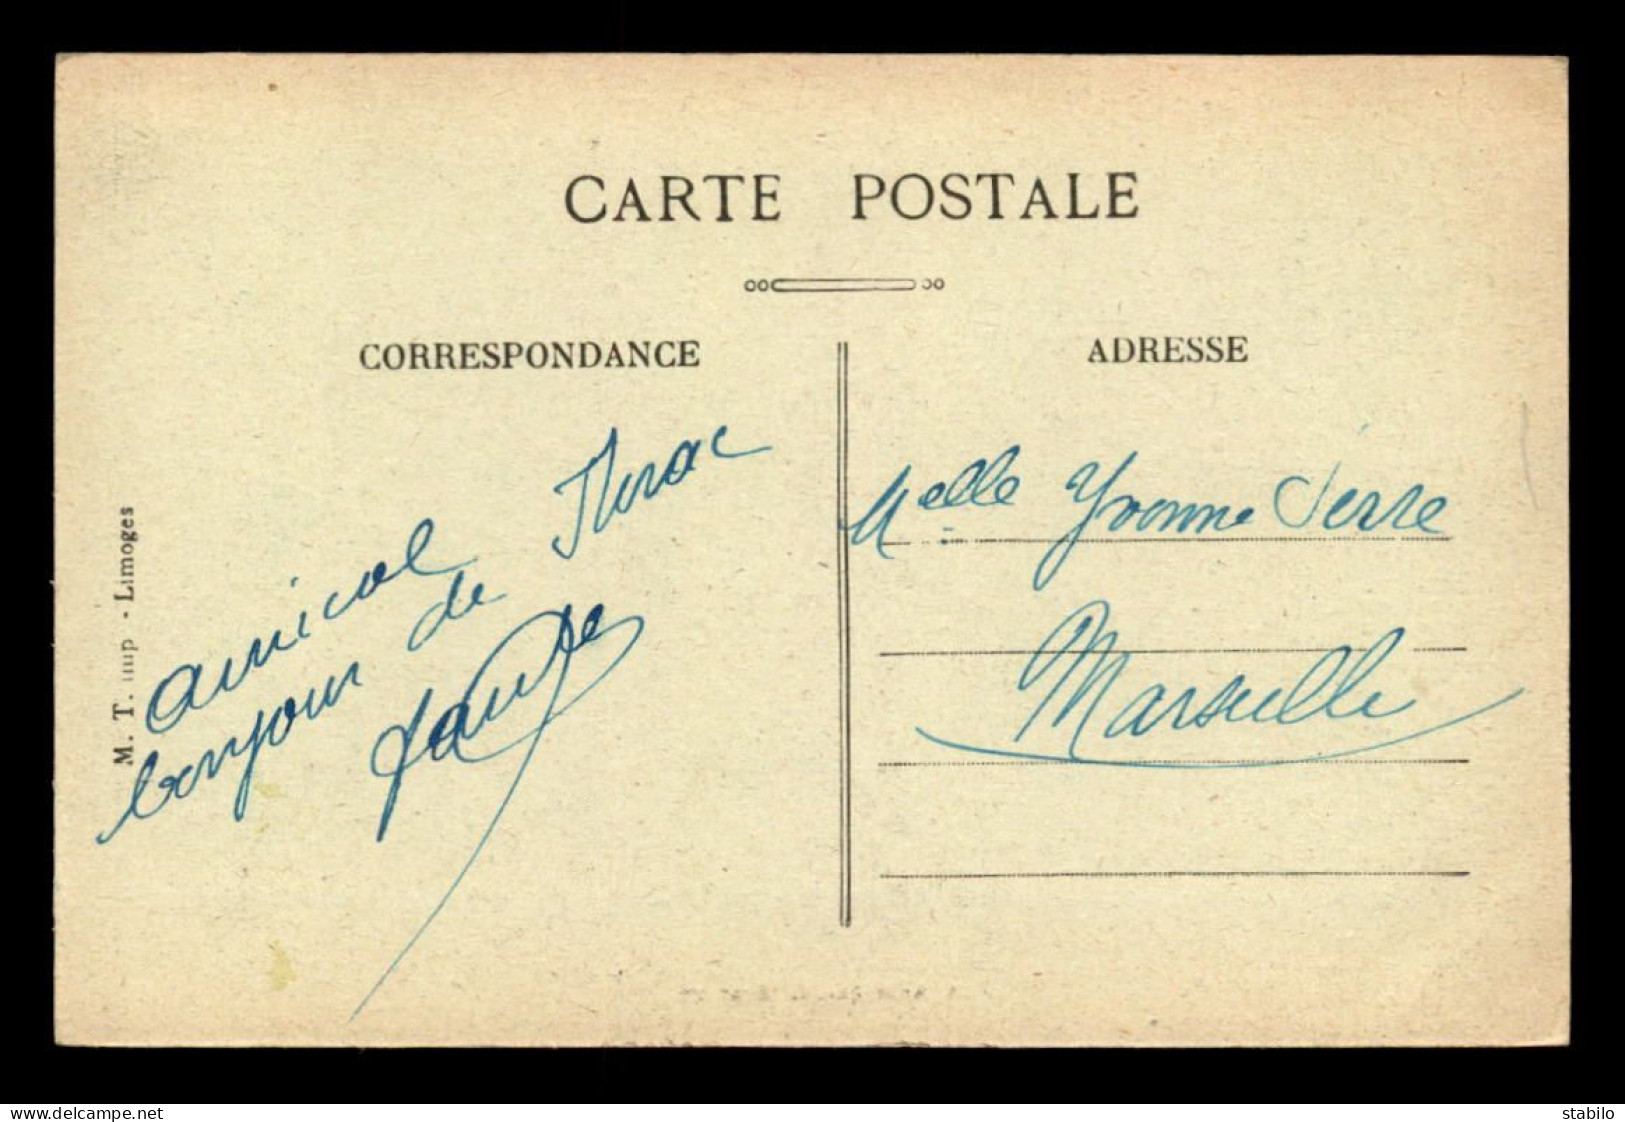 CARTE POSTALE
CORRESPONDANCE
ADRESSE
M. T. imp - Limoges
amical
bonjour de Nérac
Melle Yvonne Serre
Marseille
www.delcampe.net
stabilo